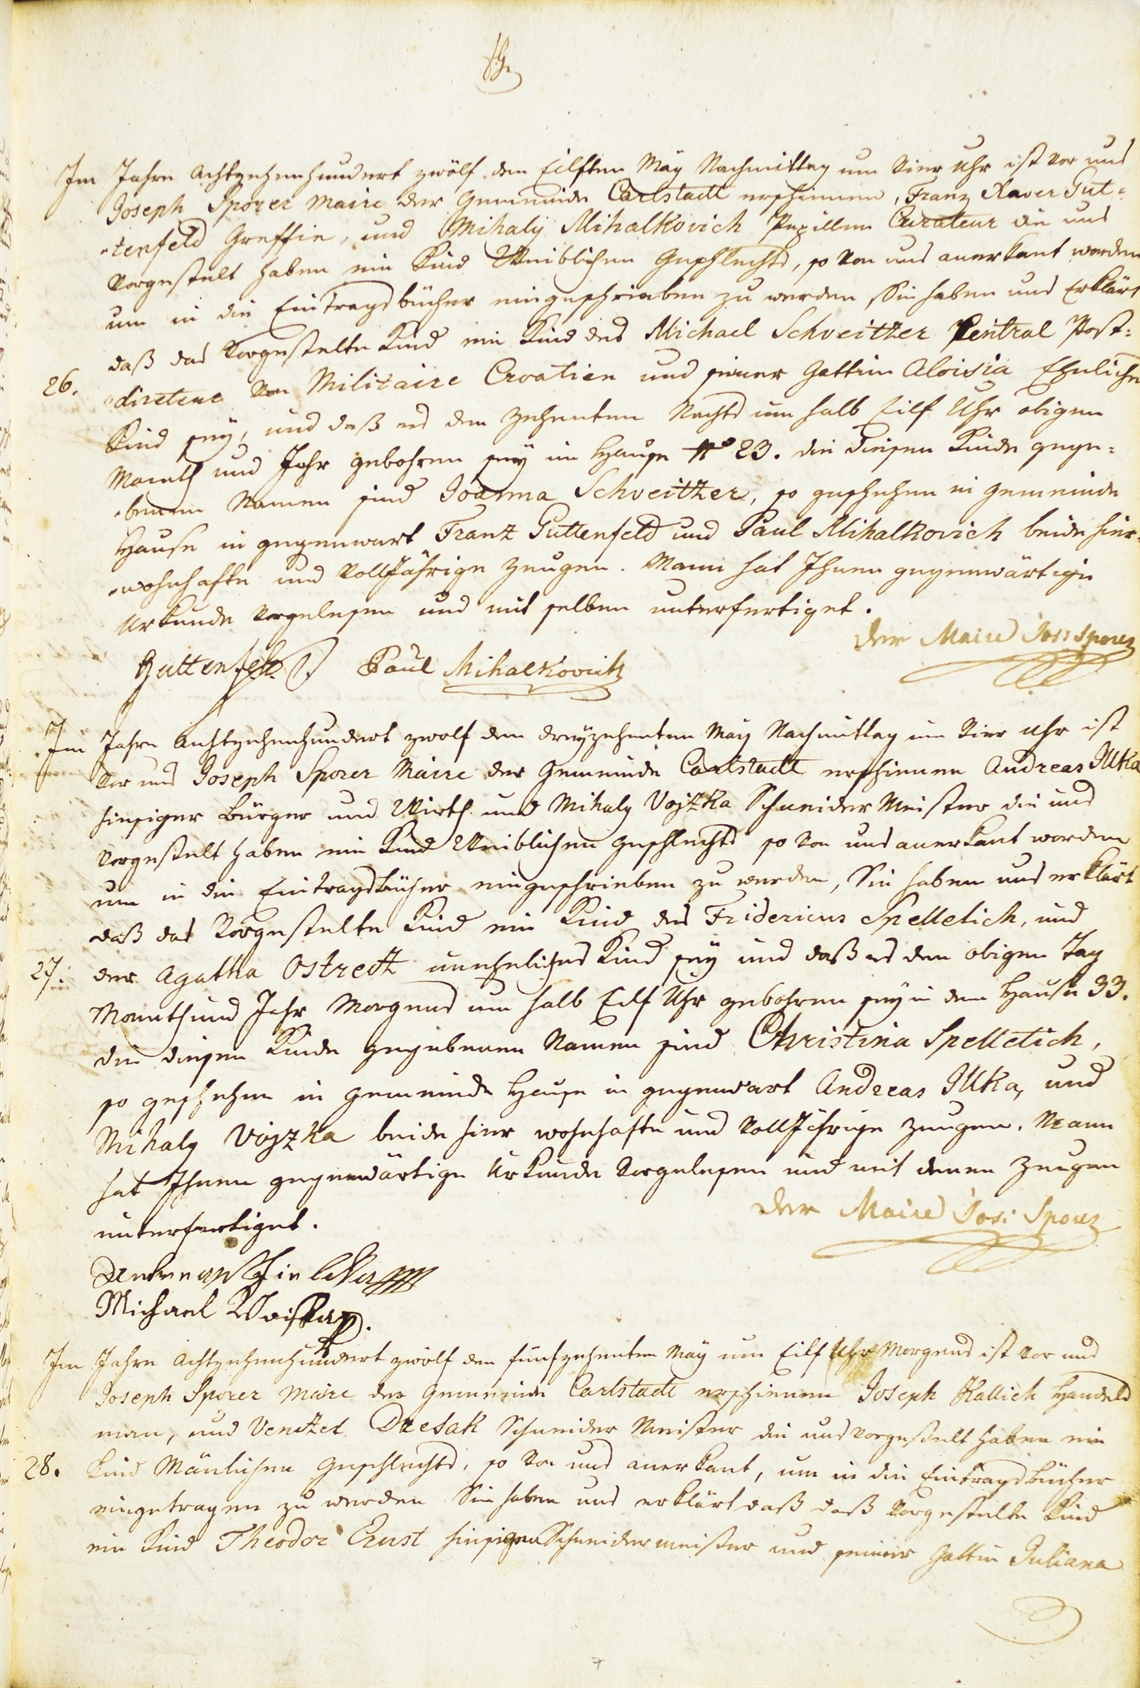 Im Jahre Achtzehenhundert zwölf den Eilften May Nachmittag um Vier Uhr ist vor uns
Joseph Sporer Maire der Gemeinde Carlstadt erschienen, Franz Xaver Gut-
-tenfeld Greffie, und Mihaly Mihalkovich Pupillen Curateur die uns
vorgestelt haben ein Kind Weiblichen Geschlechts, so von uns anerkant worden
um in die Eintragsbücher eingeschrieben zu werden Sie haben uns Erklärt
daß das vorgestelte Kind ein Kind des Michael Schveitzer Central Post-
26. -directeur von Militaire Croatien und seiner Gattin Aloisia Ehnliche
Kind sey, und daß es den zehenten Nachts um halb Eilf Uhr obigen
Monath und Jahr gebohren sey im Hause No 23. die diesen Kinde gege-
-benen Namen sind Joanna Schveitzer, so geschehen in Gemeinde
Hause in gegenwart Franz Guttenfeld und Paul Mihalkovich beide hier-
-wohnhafte und Volljährige Zeugen. Mann hat Ihnen gegenwärtige
Urkunde vorgelesen und mit selben unterfertiget.
Der Maire Jos: Sporer
Guttenfeld Paul Mihalkovich
Im Jahre Achtzehenhundert zwölf den dreyzehenten May Nachmittag um Vier Uhr ist
vor uns Joseph Sporer Maire der Gemeinde Carlstadt erschienen Andreas Illka
hiesiger Bürger und Wirth und Mihaly Vojzka Schneider Meister die uns
vorgestelt haben ein Kind Weiblichen Geschlechts so von uns anerkant worden
um in die Eintragsbücher eingeschrieben zu werden, Sie haben uns erklärt
daß das vorgestelte Kind ein Kind des Fridericus Spelletich, und
27. der Agatha Ostrett unehnliches Kind sey und daß es den obigen Tag
Monath und Jahr Morgens um halb Eilf Uhr gebohren sey in dem Hause 33.
die diesen Kinde gegebenen Namen sind Christina Spelletich,
so geschehen in Gemeinde Hause in gegenwart Andreas Illka, und
Mihaly Vojzka beide hier wohnhafte und Volljährige Zeugen. Mann
hat Ihnen gegenwärtige Urkunde vorgelesen und mit denen Zeugen
unterfertiget.
Der Maire Jos: Sporer
Michael Woiska
Im Jahre Achtzehenhundert zwölf den fünfzehenten May um Eilf Uhr Morgens ist vor uns
Joseph Sporer Maire der Gemeinde Carlstadt erschienen Joseph Kallich Handels
man, und Venczel Dresak Schneider Meister die uns vorgestelt haben ein
28. Kind Mänlichen Geschlechts, so von uns anerkant, um in die Eintragsbücher
eingetragen zu werden Sie haben uns erklärt daß daß vorgestelte Kind
ein Kind Theodor Ernst hiesigen Schneidermeister und seiner Gattin Juliana